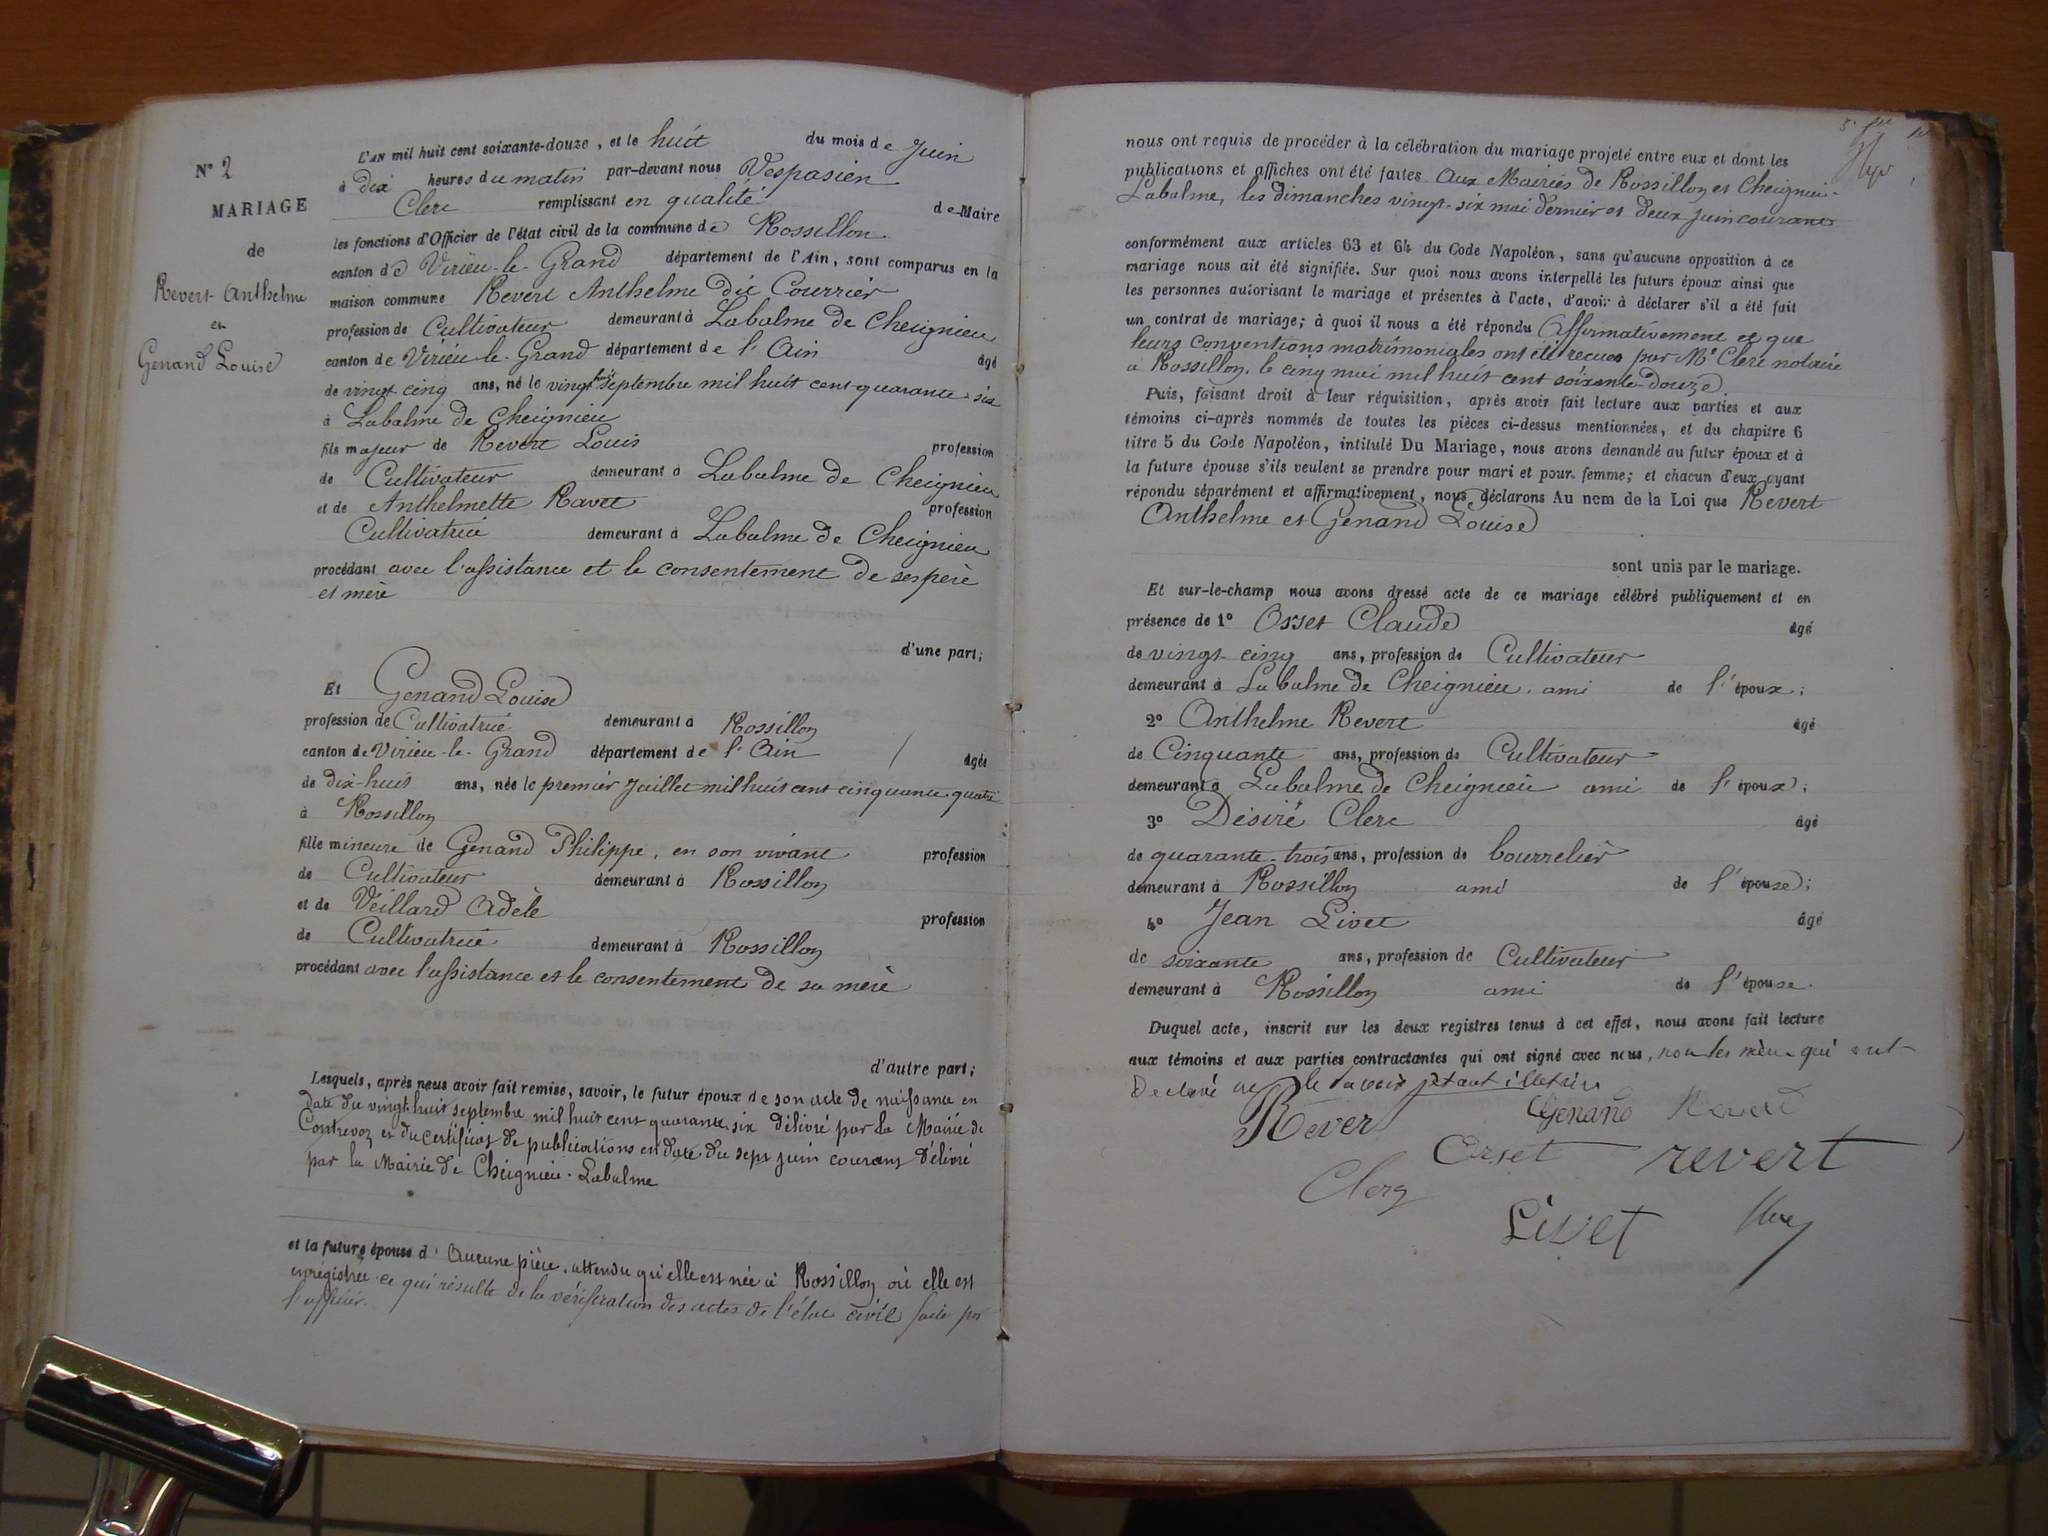 N° 2
MARIAGE
de
Revert Anthelme
et
Genand Louise
L'AN mil huit cent soixante-douze, et le huit du mois de Juin
à Dix heures du matin par-devant nous Vespasien
Clerc remplissant en qualité de Maire
les fonctions d'Officier de l'état civil de la commune de Rossillon
canton de Virieu-le-Grand département de l'Ain, sont comparus en la
maison commune Revert Anthelme dit Courrier
profession de Cultivateur demeurant à Labalme de Cheignieu
canton de Virieu-le-Grand département de l'Ain âgé
de vingt cinq ans, né le vingt huit septembre mil huit cent quarante-six
à Labalme de Cheignieu
fils majeur de Revert Louis profession
de Cultivateur demeurant à Labalme de Cheignieu
et de Anthelmette Ravet profession
Cultivatrice demeurant à Labalme de Cheignieu
procédant avec l'assistance et le consentement de ses père
et mère
d'une part;
Et Genand Louise
profession de Cultivatrice demeurant à Rossillon
canton de Virieu-le-Grand département de l'Ain / âgée
de dix-huit ans, née le premier Juillet mil huit cent cinquante quatre
à Rossillon
fille mineure de Genand Philippe, en son vivant profession
de Cultivateur demeurant à Rossillon
et de Veillard Adèle profession
de Cultivatrice demeurant à Rossillon
procédant avec l'assistance et le consentement de sa mère
d'autre part;
Lesquels, après nous avoir fait remise, savoir, le futur époux de son acte de naissance en
date du vingt-huit septembre mil huit cent quarante six délivré par la Mairie de
Contrevoz et du certificat de publications en date du sept juin courant délivré
par la Mairie de Cheignieu-Labalme
et la future épouse d'Aucune pièce, attendu qu'elle est née à Rossillon où elle est
enregistrée ce qui résulte de la vérification des actes de l'état civil faite par
l'officier
nous ont requis de procéder à la célébration du mariage projeté entre eux et dont les
publications et affiches ont été faites Aux Mairies de Rossillon et Cheignieu-
Labalme, les dimanches vingt-six mai dernier et deux juin courant
conformément aux articles 63 et 64 du Code Napoléon, sans qu'aucune opposition à ce
mariage nous ait été signifiée. Sur quoi nous avons interpellé les futurs époux ainsi que
les personnes autorisant le mariage et présentes à l'acte, d'avoir à déclarer s'il a été fait
un contrat de mariage; à quoi il nous a été répondu Affirmativement et que
leurs Conventions matrimoniales ont été recues par Me Clerc notaire
à Rossillon, le cinq mai mil huit cent soixante-douze
Puis, faisant droit à leur réquisition, après avoir fait lecture aux parties et aux
témoins ci-après nommés de toutes les pièces ci-dessus mentionnées, et du chapitre 6
titre 5 du Code Napoléon, intitulé Du Mariage, nous avons demandé au futur époux et à
la future épouse s'ils veulent se prendre pour mari et pour femme; et chacun d'eux ayant
répondu séparément et affirmativement, nous déclarons Au nom de la Loi que Revert
Anthelme et Genand Louise
sont unis par le mariage.
Et sur-le-champ nous avons dressé acte de ce mariage célébré publiquement et en
présence de 1° Orset Claude âgé
de vingt-cinq ans, profession de Cultivateur
demeurant à Labalme de Cheignieu, ami de l'époux;
2° Anthelme Revert âgé
de Cinquante ans, profession de Cultivateur
demeurant à Labalme de Cheignieu ami de l'époux;
3° Désiré Clerc âgé
de quarante-trois ans, profession de bourrelier
demeurant à Rossillon ami de l'épouse;
4° Jean Livet âgé
de soixante ans, profession de Cultivateur
demeurant à Rossillon ami de l'épouse.
Duquel acte, inscrit sur les deux registres tenus à cet effet, nous avons fait lecture
aux témoins et aux parties contractantes qui ont signé avec nous, non les mères qui ont
Déclaré ne le savoir
Revert Genand Revert
Orset revert
Clerc
Livet Clerc